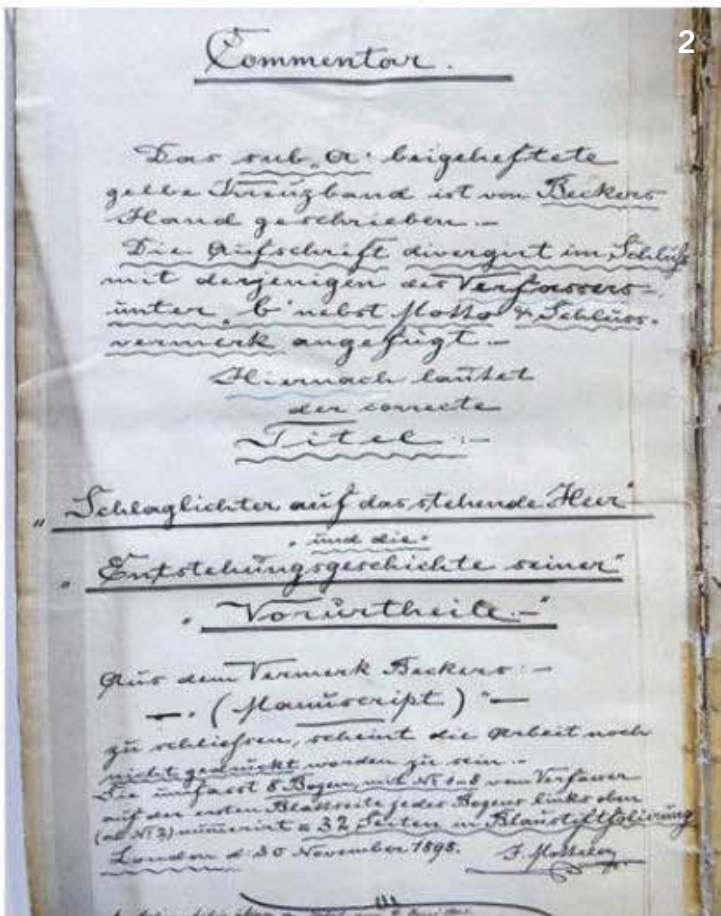 2
Commentar.
Das sub „A" beigeheftete
gelbe Kreuzband ist von Beckers
Hand geschrieben.-
Die Aufschrift divergirt im Schluß
mit derjenigen des Verfassers-
unter „b" nebst Motto & Schluss-
vermerk angefügt.-
Hiernach lautet
der correcte
Titel:-
„Schlaglichter auf das stehende Heer"
"und die"
"Entstehungsgeschichte seiner"
"Vorurtheile.-"
Aus dem Vermerk Beckers:-
-"(Manuscript)"-
zu schliessen, scheint die Arbeit noch
nicht gedruckt worden zu sein.-
Sie umfasst 8 Bogen, mit No 1-8 vom Verfasser
auf der ersten Blattseite jedes Bogens links oben
(ab No 3) numerirt = 32 Seiten in Blaustiftfoliirung
London d. 30 November 1898. J. Motteler